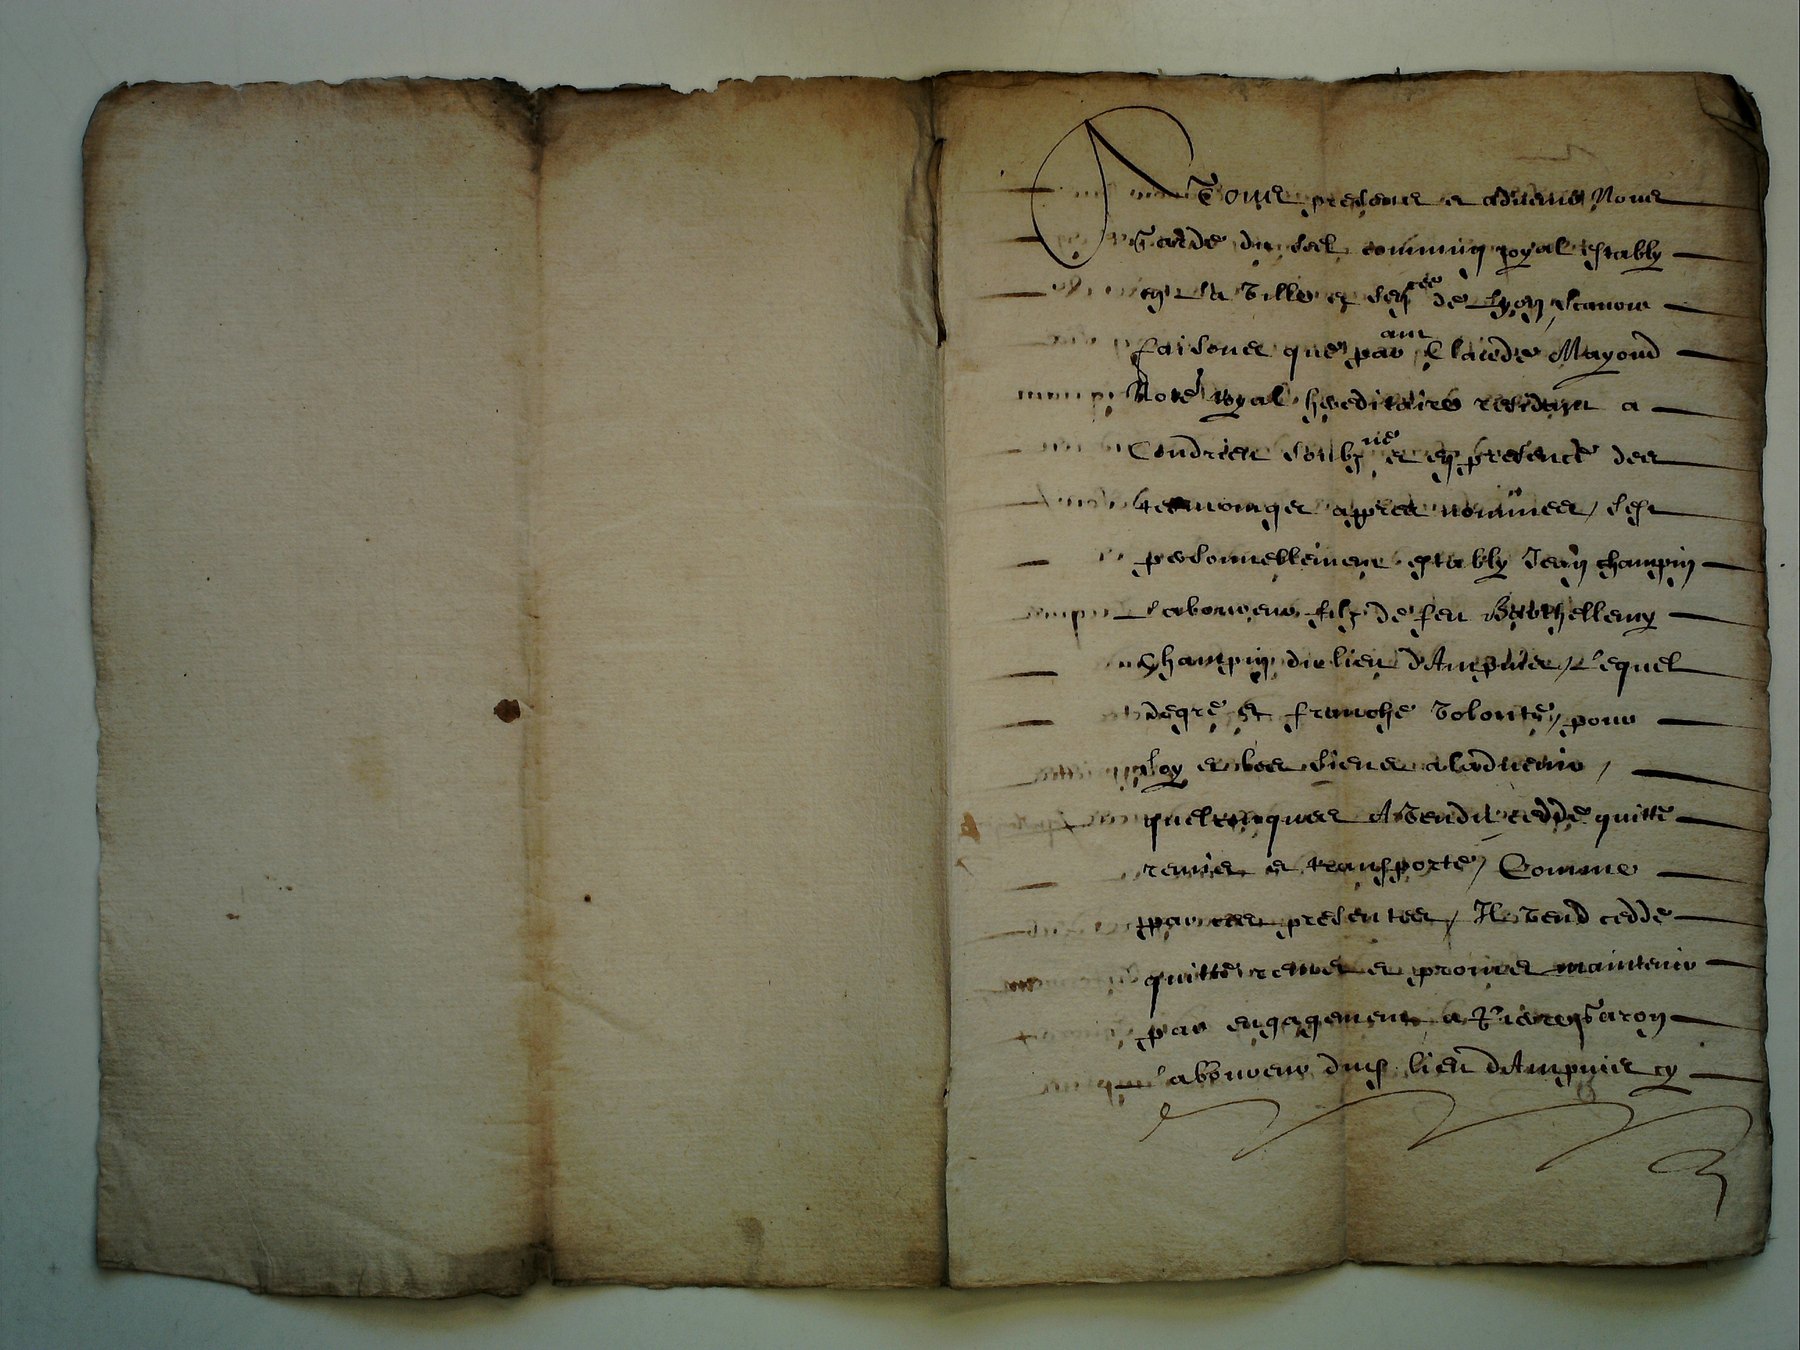 A Tous presens et advenir Nous
Garde du seel commung royal estably
en la Ville et Sen^cee de Lyon scavoir
faisons que par^ant Claude Mayoud
Not^e royal hereditaire residant a
Condrieu soubz^ne et en presence des
tesmoingz appres nommes / s'est
personnellement estably Jean champin
Laboureur filz de feu Barthellemy
Champin du lieu d'Ampuies / Lequel
de gre et franche Volonte, pour
loy et les siens a ladvenir /
quelconques A Vendu cedde quitte
remis et transporte / Comme
par ces presentes / Il Vend cedde
quitte remet et promet maintenir
par engagement a Pierre Garon
Laboureur dud lieu d'Ampuies cy